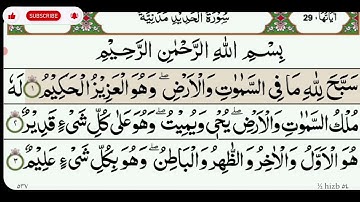 SUBSCRIBE
اٰيَاتُهَا، 29
سُوْرَةُ الْحَدِيْدِ مَدَنِيَّةٌ
بِسْمِ اللّٰهِ الرَّحْمٰنِ الرَّحِيْمِ
سَبَّحَ لِلّٰهِ مَا فِى السَّمٰوٰتِ وَالْاَرْضِ ۚ وَهُوَ الْعَزِيْزُ الْحَكِيْمُ ۝۱ لَهٗ
مُلْكُ السَّمٰوٰتِ وَالْاَرْضِ ۚ يُحْيٖ وَيُمِيْتُ ۚ وَهُوَ عَلٰى كُلِّ شَیْءٍ قَدِيْرٌ ۝۲
هُوَ الْاَوَّلُ وَالْاٰخِرُ وَالظَّاهِرُ وَالْبَاطِنُ ۚ وَهُوَ بِكُلِّ شَیْءٍ عَلِيْمٌ ۝۳
٥٣٧
½ hizb ٥٤